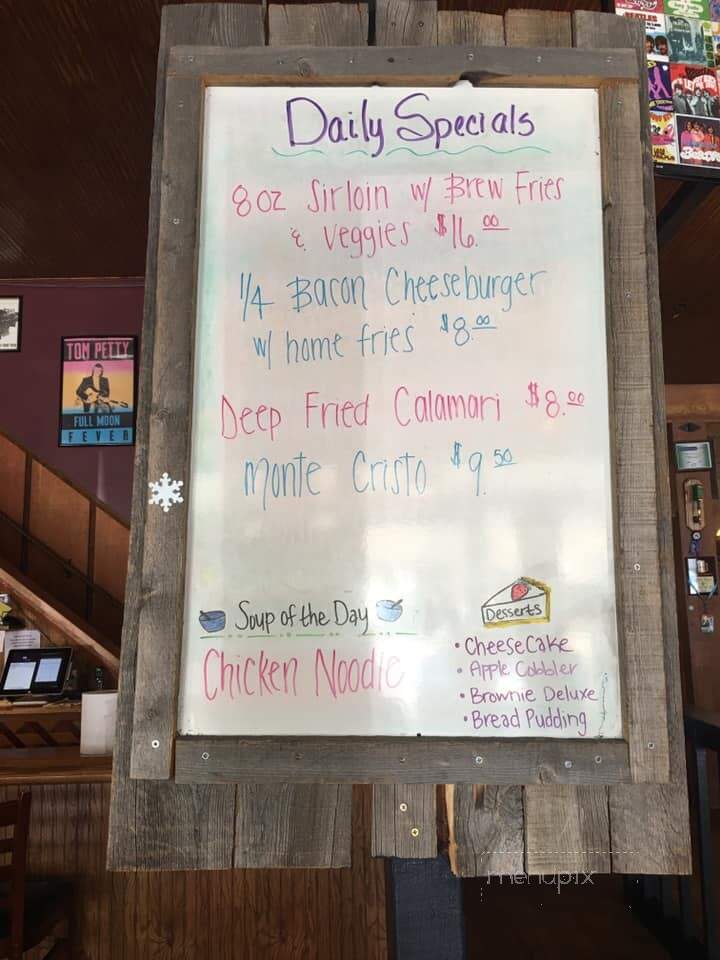 Daily Specials
8 oz Sirloin w/ Brew Fries
& Veggies $16.00
1/4 Bacon Cheeseburger
w/ home fries $8.00
Deep Fried Calamari $8.00
Monte Cristo $9.50
Soup of the Day
Chicken Noodle
Desserts
• CheeseCake
• Apple Cobbler
• Brownie Deluxe
• Bread Pudding
TOM PETTY
FULL MOON
FEVER
BEATLES
menupix